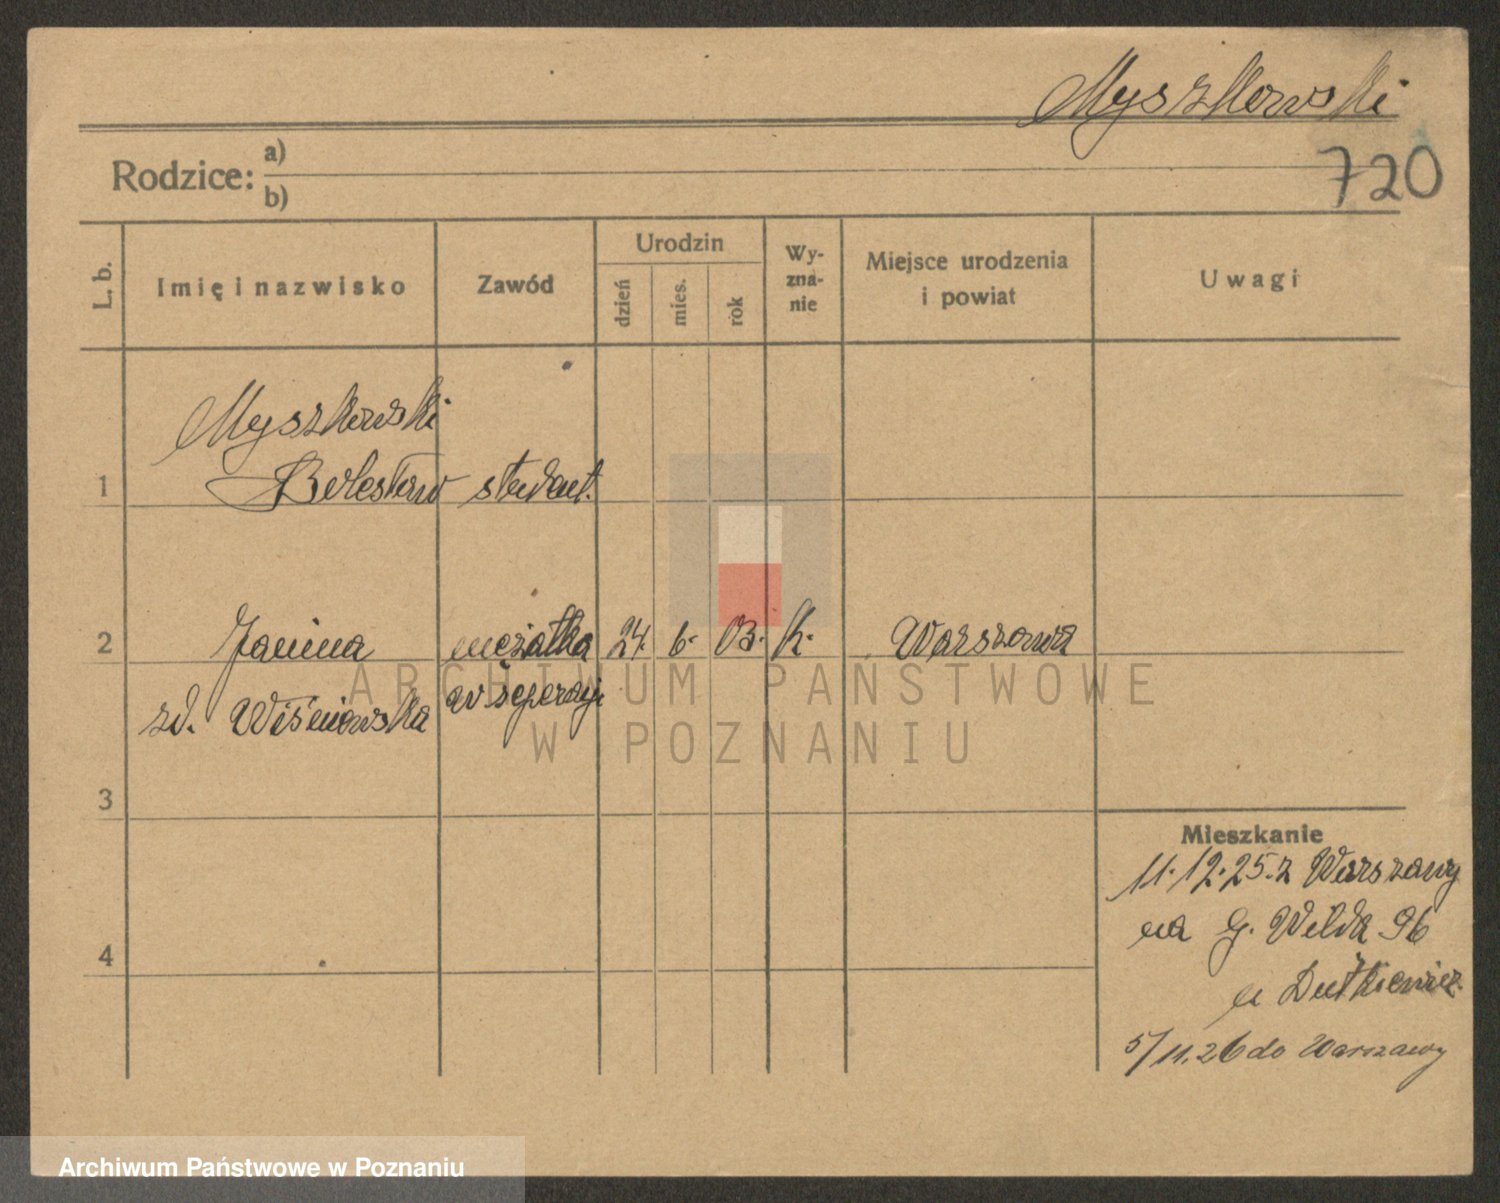 Myszkowski
720
Rodzice: a)
b)
L. b.
Imię i nazwisko
Zawód
Urodzin
dzień
mies.
rok
Wy-
zna-
nie
Miejsce urodzenia
i powiat
Uwagi
Myszkowski
1 Bolesław student.
2 Janina mężatka 24. 6. 03. k. Warszawa
zd. Wiśniowska w seperacji
3
4
Mieszkanie
11.12.25. z Warszawy
na G. Wilda 96
u Dutkiewicz.
5/11.26 do Warszawy
ARCHIWUM PAŃSTWOWE
W POZNANIU
Archiwum Państwowe w Poznaniu